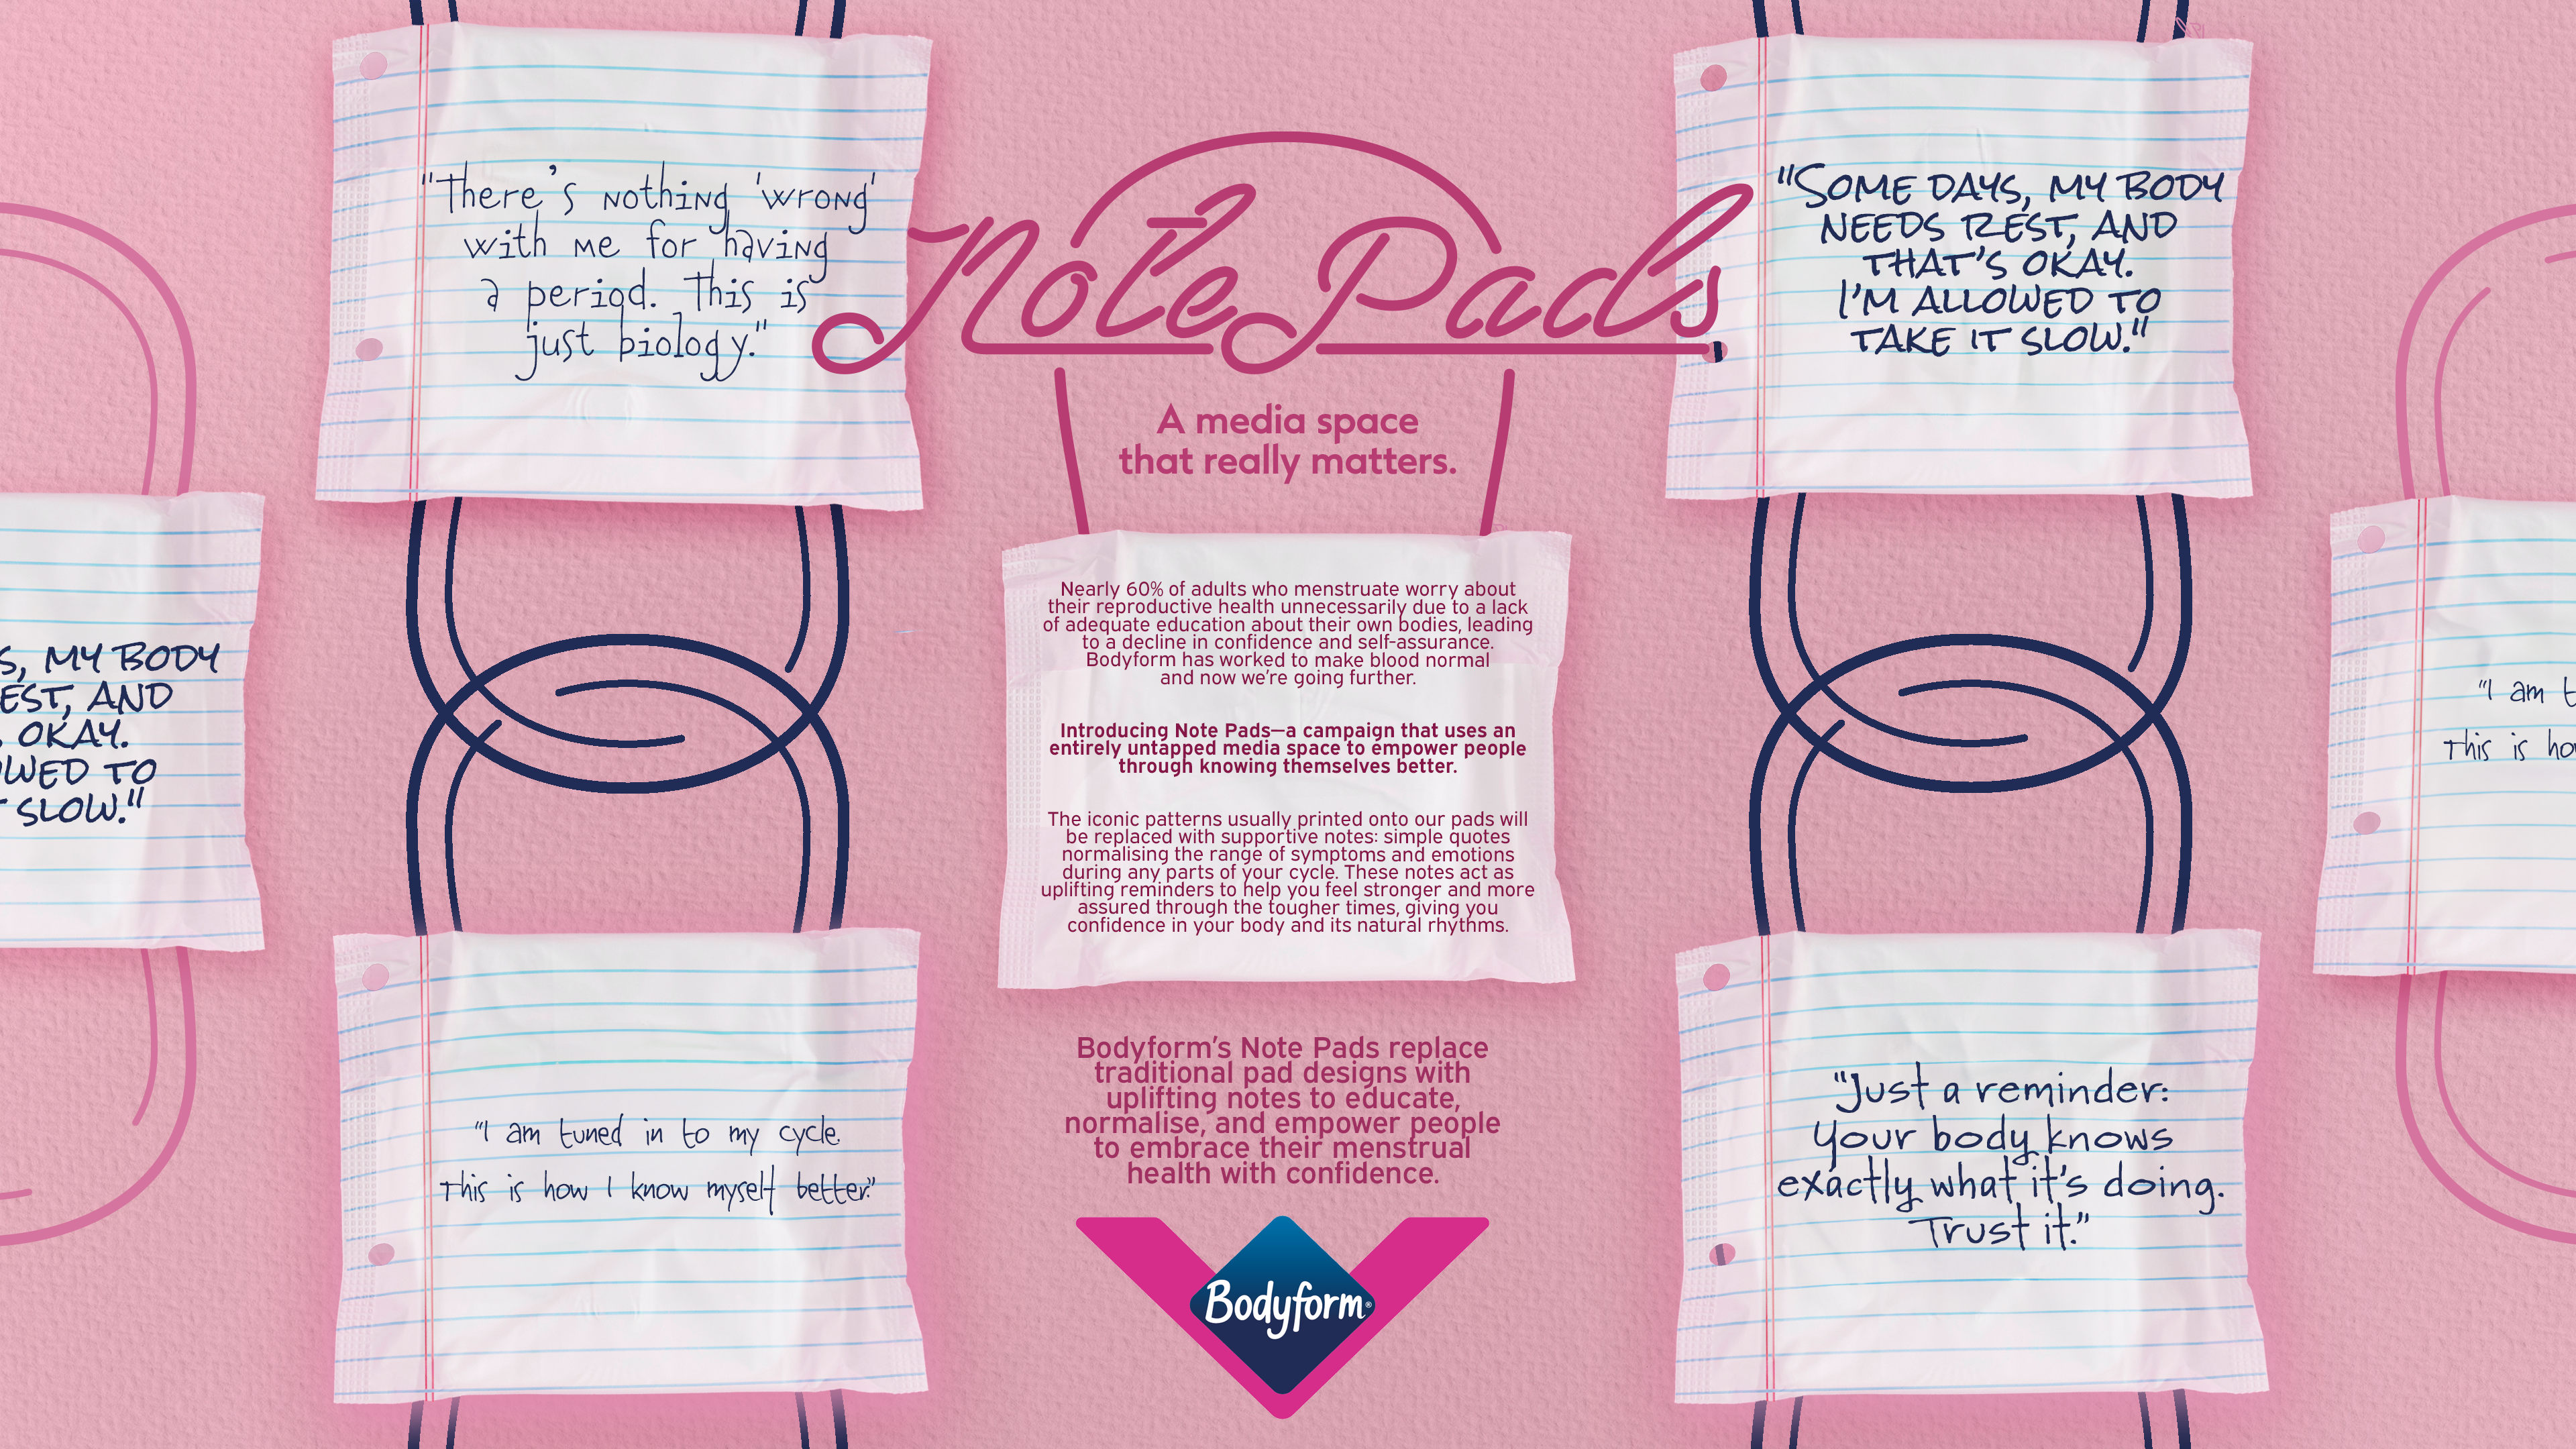 "There's nothing 'wrong'
with me for having
a period. This is
just biology."
Note Pads
A media space
that really matters.
"SOME DAYS, MY BODY
NEEDS REST, AND
THAT'S OKAY.
I'M ALLOWED TO
TAKE IT SLOW."
S, MY BODY
EST, AND
OKAY.
WED TO
SLOW."
Nearly 60% of adults who menstruate worry about
their reproductive health unnecessarily due to a lack
of adequate education about their own bodies, leading
to a decline in confidence and self-assurance.
Bodyform has worked to make blood normal
and now we're going further.
Introducing Note Pads—a campaign that uses an
entirely untapped media space to empower people
through knowing themselves better.
The iconic patterns usually printed onto our pads will
be replaced with supportive notes: simple quotes
normalising the range of symptoms and emotions
during any parts of your cycle. These notes act as
uplifting reminders to help you feel stronger and more
assured through the tougher times, giving you
confidence in your body and its natural rhythms.
"I am t
This is ho
"I am tuned in to my cycle.
This is how I know myself better."
Bodyform's Note Pads replace
traditional pad designs with
uplifting notes to educate,
normalise, and empower people
to embrace their menstrual
health with confidence.
Bodyform®
"Just a reminder:
Your body knows
exactly what it's doing.
Trust it."